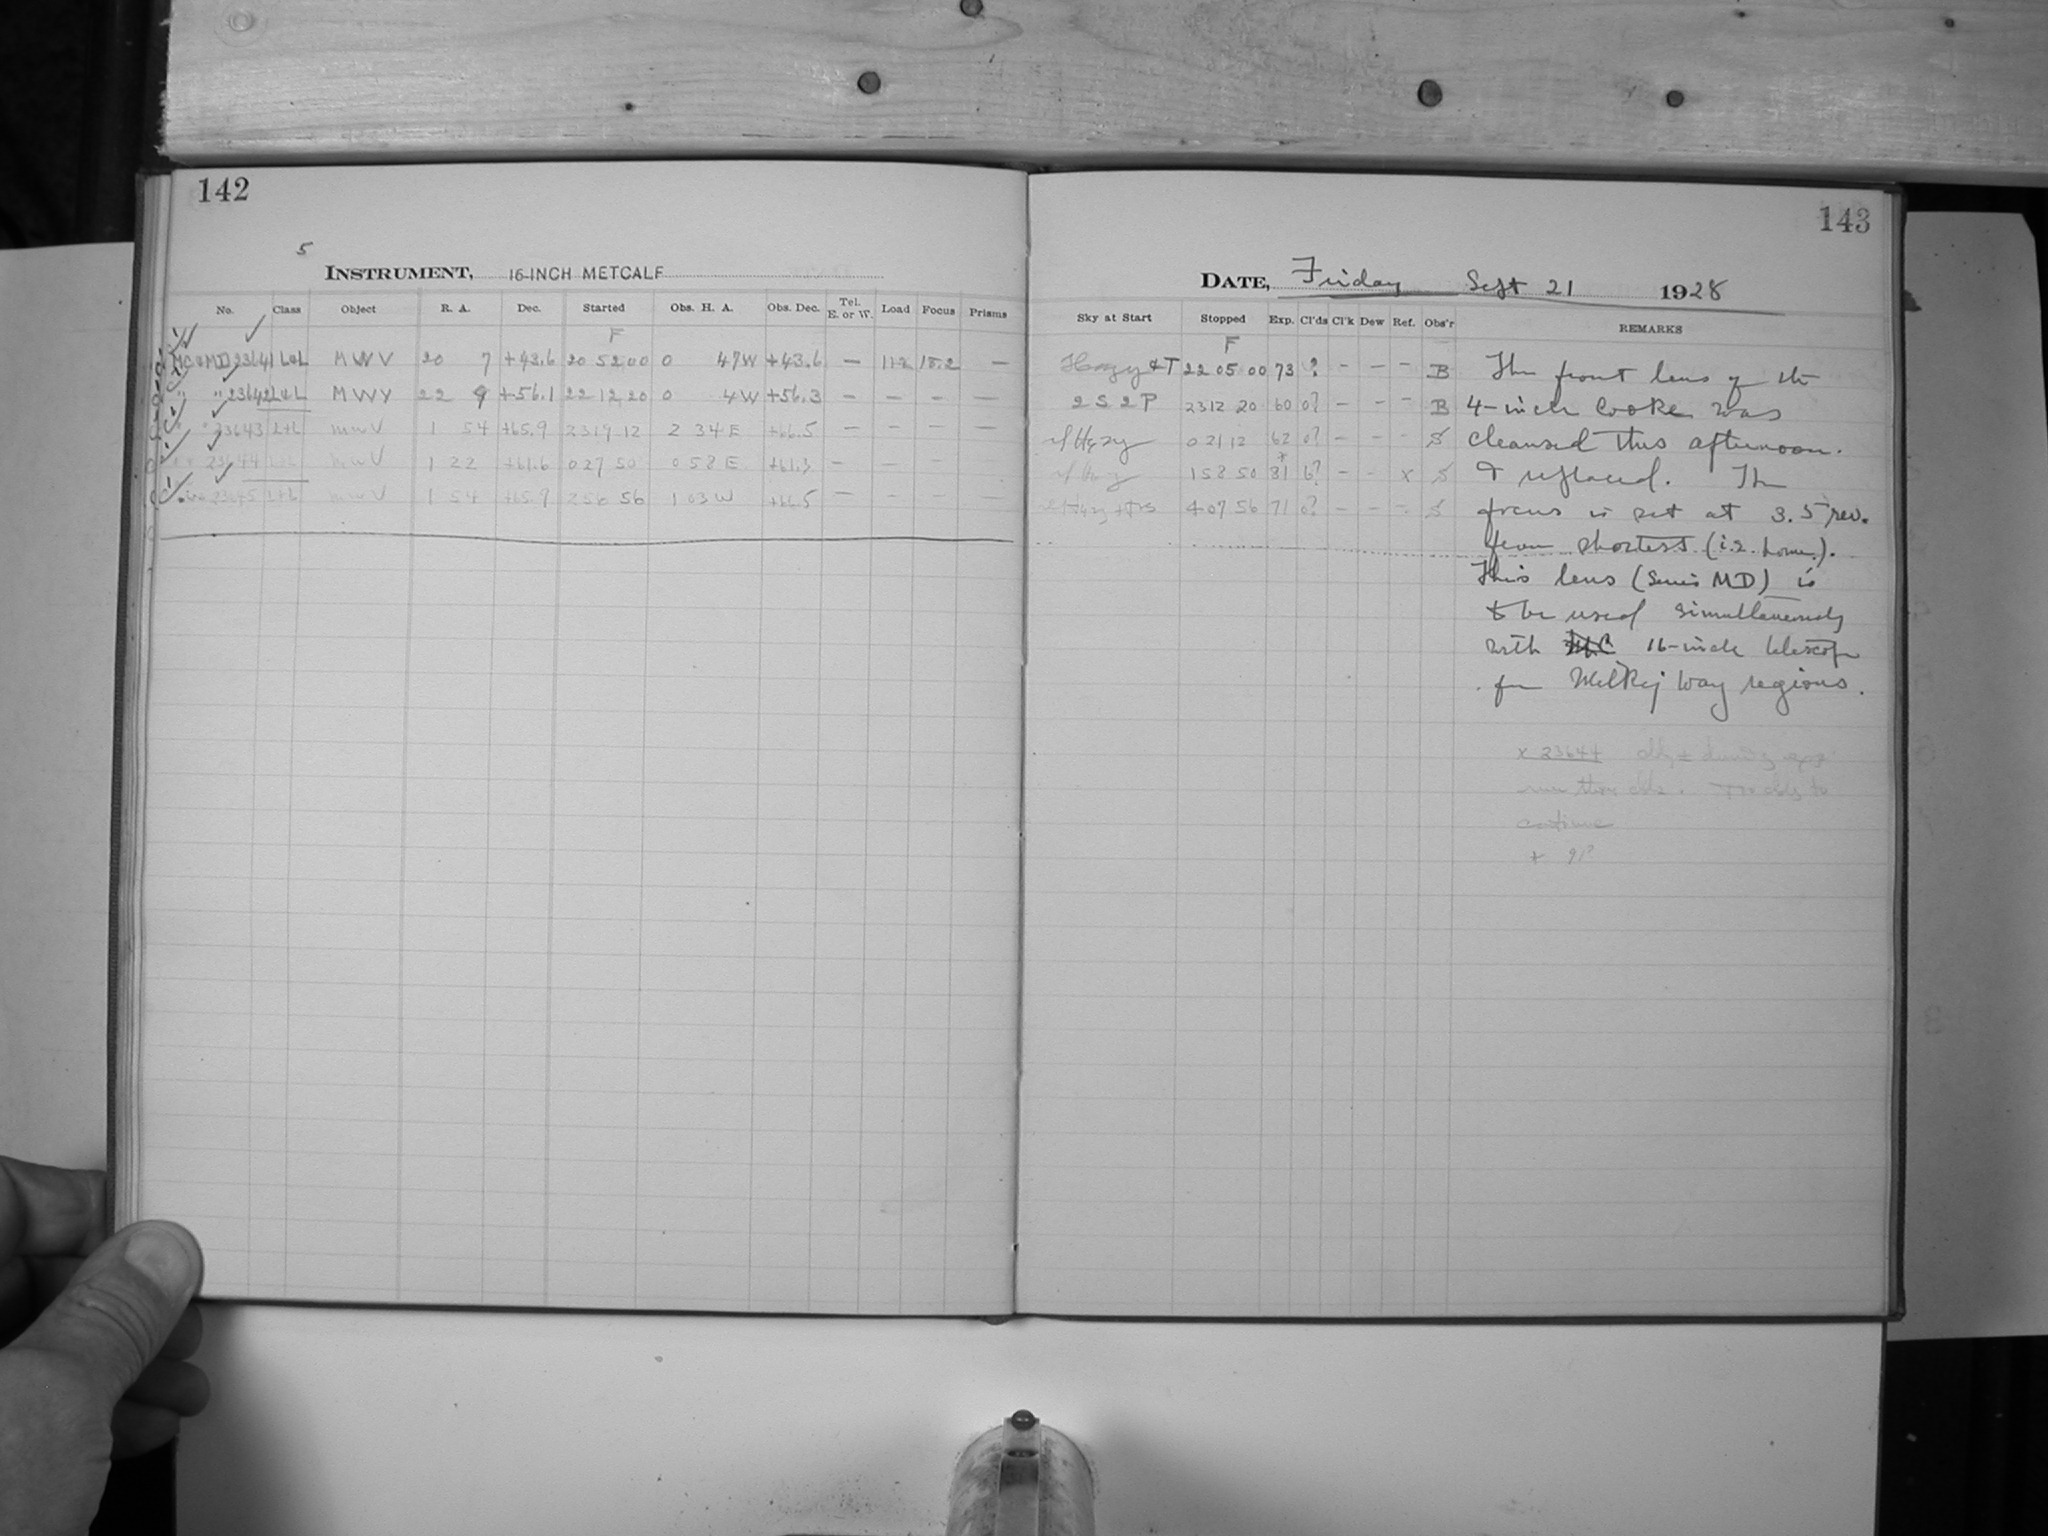 142
5
INSTRUMENT, 16-INCH METCALF
No. Class Object R. A. Dec. Started Obs. H. A. Obs. Dec. Tel. E. or W. Load Focus Prisms
F
MC & MD 23641 L&L M W V 20 7 +43.6 20 52 00 0 47W +43.6 — 11.2 18.2 —
" " 23642 L&L M W V 22 9 +56.1 22 12 20 0 4W +56.3 — — — —
" " 23643 L&L m w V 1 54 +65.9 23 19 12 2 34 E +66.5 — — — —
23644 L&L m w V 1 22 +61.6 0 27 50 0 58 E +61.3 — — — —
23645 L&L m w V 1 54 +65.9 2 56 56 1 03 W +66.5 — — — —
143
DATE, Friday Sept 21 1928
Sky at Start Stopped Exp. Cl'ds Cl'k Dew Ref. Obs'r REMARKS
F
Hazy &T 22 05 00 73 ? — — — B The front lens of the
2 S 2 P 23 12 20 60 0? — — — B 4-inch Cooke was
Hazy 0 21 12 62 0? — — — S cleansed this afternoon.
1 58 50 81 6? — — x S & replaced. The
4 07 56 71 0? — — — S focus is set at 3.5 rev.
from shortest (i.e. home).
This lens (Series MD) is
to be used simultaneously
with 16-inch telescope
for Milky Way regions.
x 23644 during exp
continue